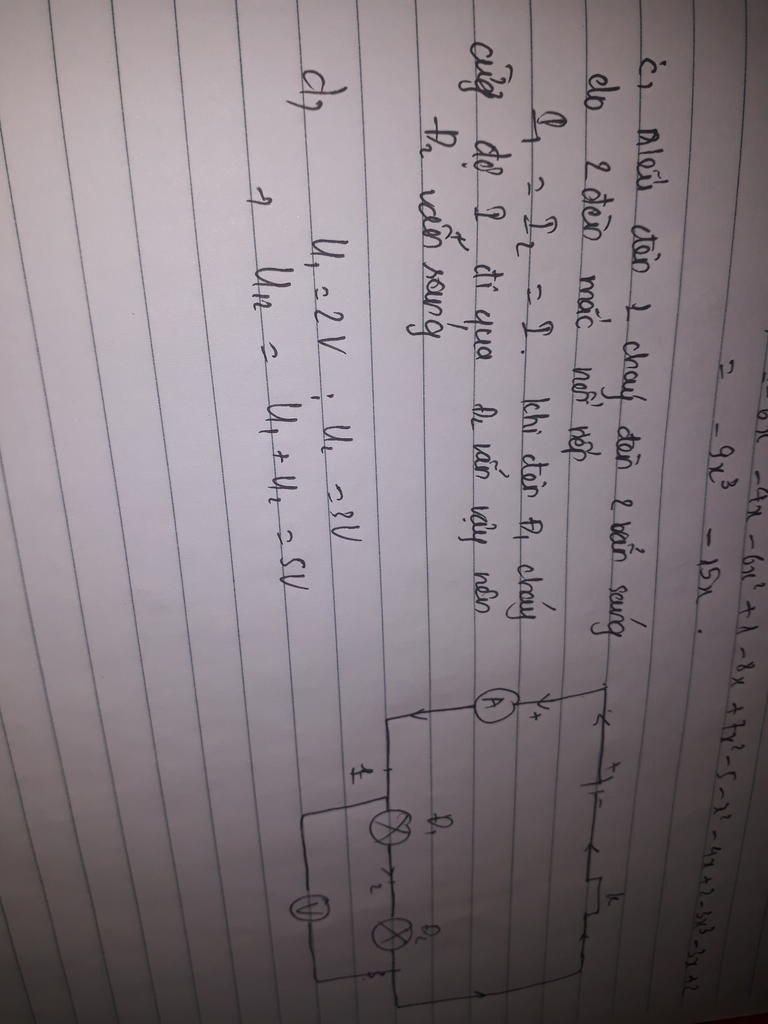 = 6x - 4x - 6x² + 1 - 8x + 7x² - 5 - x² - 4x + 2 - 3x³ - 3x + 2
= - 9x³ - 15x .
c, Nếu đèn 1 cháy đèn 2 vẫn sáng
do 2 đèn mắc nối tiếp
I₁ = I₂ = I. khi đèn Đ₁ cháy
cường độ I đi qua Đ₂ vẫn vậy nên
Đ₂ vẫn sáng
d, U₁ = 2V ; U₂ = 3V
→ U₁₂ = U₁ + U₂ = 5V
+ -
k
+
A
Đ₁ Đ₂
1 2 3
V